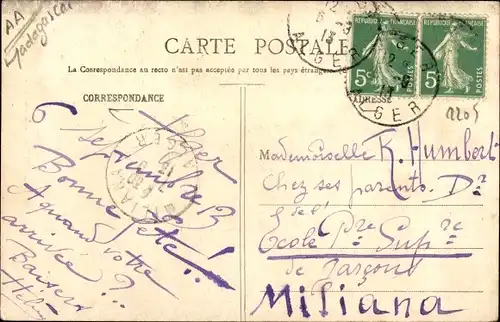 AA
Madagascar
CARTE POSTALE
La Correspondance au recto n'est pas acceptée par tous les pays étrangers
CORRESPONDANCE
ADRESSE
RÉPUBLIQUE FRANÇAISE
5c
POSTES
RÉPUBLIQUE FRANÇAISE
5c
POSTES
ALGER
ALGER
1205
Alger
6 Septembre 13
Bonne fête!!
A quand votre
arrivée?..
Baisers
Mademoiselle K. Humbert
Chez ses parents. Dr
de l'
Ecole Pre Supre
de Garçons
Miliana